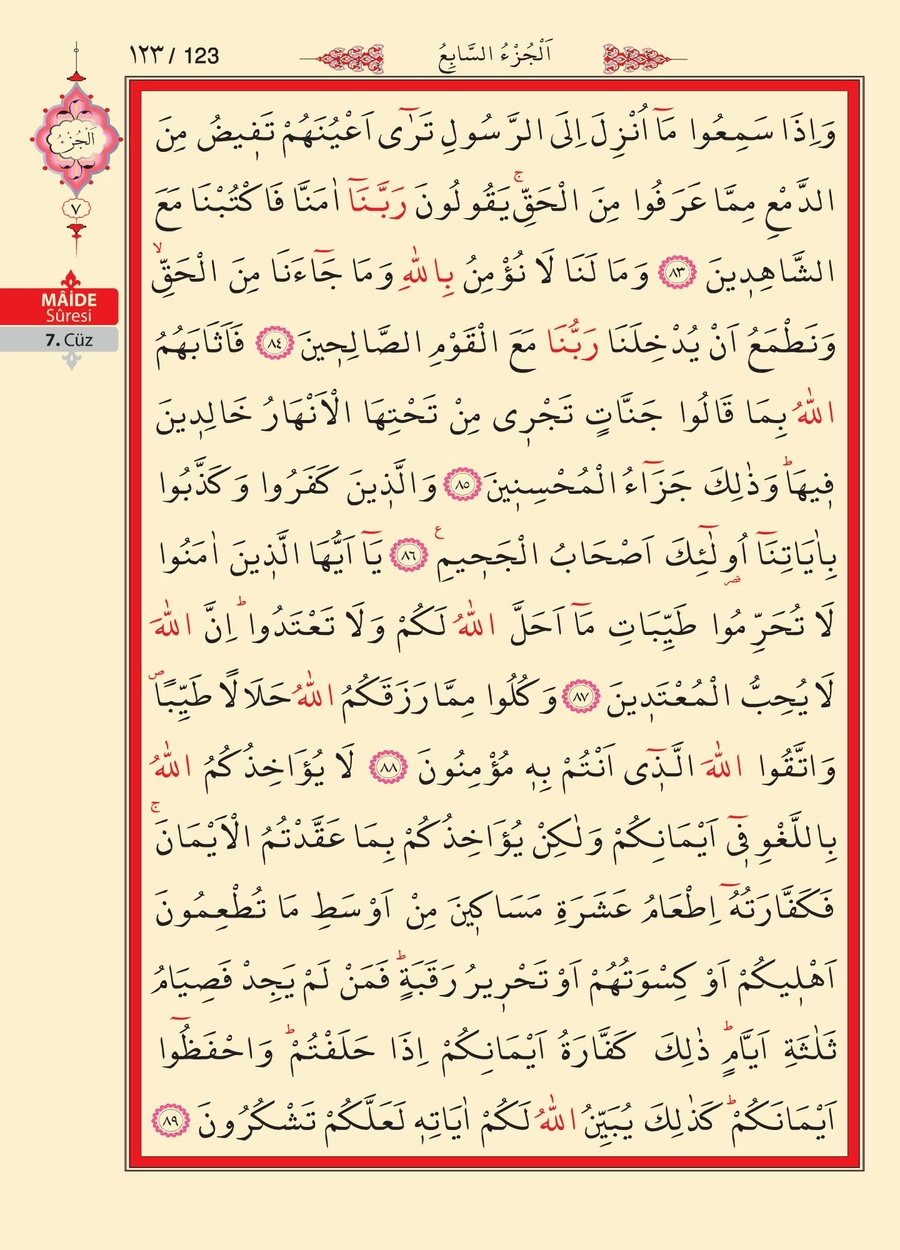 ١٢٣ / 123
اَلْجُزْءُ السَّابِعُ
اَلْجُزْءُ
٧
MÂİDE
Sûresi
7. Cüz
وَاِذَا سَمِعُوا مَٓا اُنْزِلَ اِلَى الرَّسُولِ تَرٰٓى اَعْيُنَهُمْ تَف۪يضُ مِنَ
الدَّمْعِ مِمَّا عَرَفُوا مِنَ الْحَقِّۚ يَقُولُونَ رَبَّنَٓا اٰمَنَّا فَاكْتُبْنَا مَعَ
الشَّاهِد۪ينَ ﴿٨٣﴾ وَمَا لَنَا لَا نُؤْمِنُ بِاللّٰهِ وَمَا جَٓاءَنَا مِنَ الْحَقِّۙ
وَنَطْمَعُ اَنْ يُدْخِلَنَا رَبُّنَا مَعَ الْقَوْمِ الصَّالِح۪ينَ ﴿٨٤﴾ فَاَثَابَهُمُ
اللّٰهُ بِمَا قَالُوا جَنَّاتٍ تَجْر۪ى مِنْ تَحْتِهَا الْاَنْهَارُ خَالِد۪ينَ
ف۪يهَاۜ وَذٰلِكَ جَزَٓاءُ الْمُحْسِن۪ينَ ﴿٨٥﴾ وَالَّذ۪ينَ كَفَرُوا وَكَذَّبُوا
بِاٰيَاتِنَٓا اُو۬لٰٓئِكَ اَصْحَابُ الْجَح۪يمِ۟ ﴿٨٦﴾ يَٓا اَيُّهَا الَّذ۪ينَ اٰمَنُوا
لَا تُحَرِّمُوا طَيِّبَاتِ مَٓا اَحَلَّ اللّٰهُ لَكُمْ وَلَا تَعْتَدُواۜ اِنَّ اللّٰهَ
لَا يُحِبُّ الْمُعْتَد۪ينَ ﴿٨٧﴾ وَكُلُوا مِمَّا رَزَقَكُمُ اللّٰهُ حَلَالًا طَيِّبًاۖ
وَاتَّقُوا اللّٰهَ الَّذ۪ٓى اَنْتُمْ بِه۪ مُؤْمِنُونَ ﴿٨٨﴾ لَا يُؤَاخِذُكُمُ اللّٰهُ
بِاللَّغْوِ ف۪ٓى اَيْمَانِكُمْ وَلٰكِنْ يُؤَاخِذُكُمْ بِمَا عَقَّدْتُمُ الْاَيْمَانَۚ
فَكَفَّارَتُهُٓ اِطْعَامُ عَشَرَةِ مَسَاك۪ينَ مِنْ اَوْسَطِ مَا تُطْعِمُونَ
اَهْل۪يكُمْ اَوْ كِسْوَتُهُمْ اَوْ تَحْر۪يرُ رَقَبَةٍۜ فَمَنْ لَمْ يَجِدْ فَصِيَامُ
ثَلٰثَةِ اَيَّامٍۜ ذٰلِكَ كَفَّارَةُ اَيْمَانِكُمْ اِذَا حَلَفْتُمْۜ وَاحْفَظُٓوا
اَيْمَانَكُمْۜ كَذٰلِكَ يُبَيِّنُ اللّٰهُ لَكُمْ اٰيَاتِه۪ لَعَلَّكُمْ تَشْكُرُونَ ﴿٨٩﴾